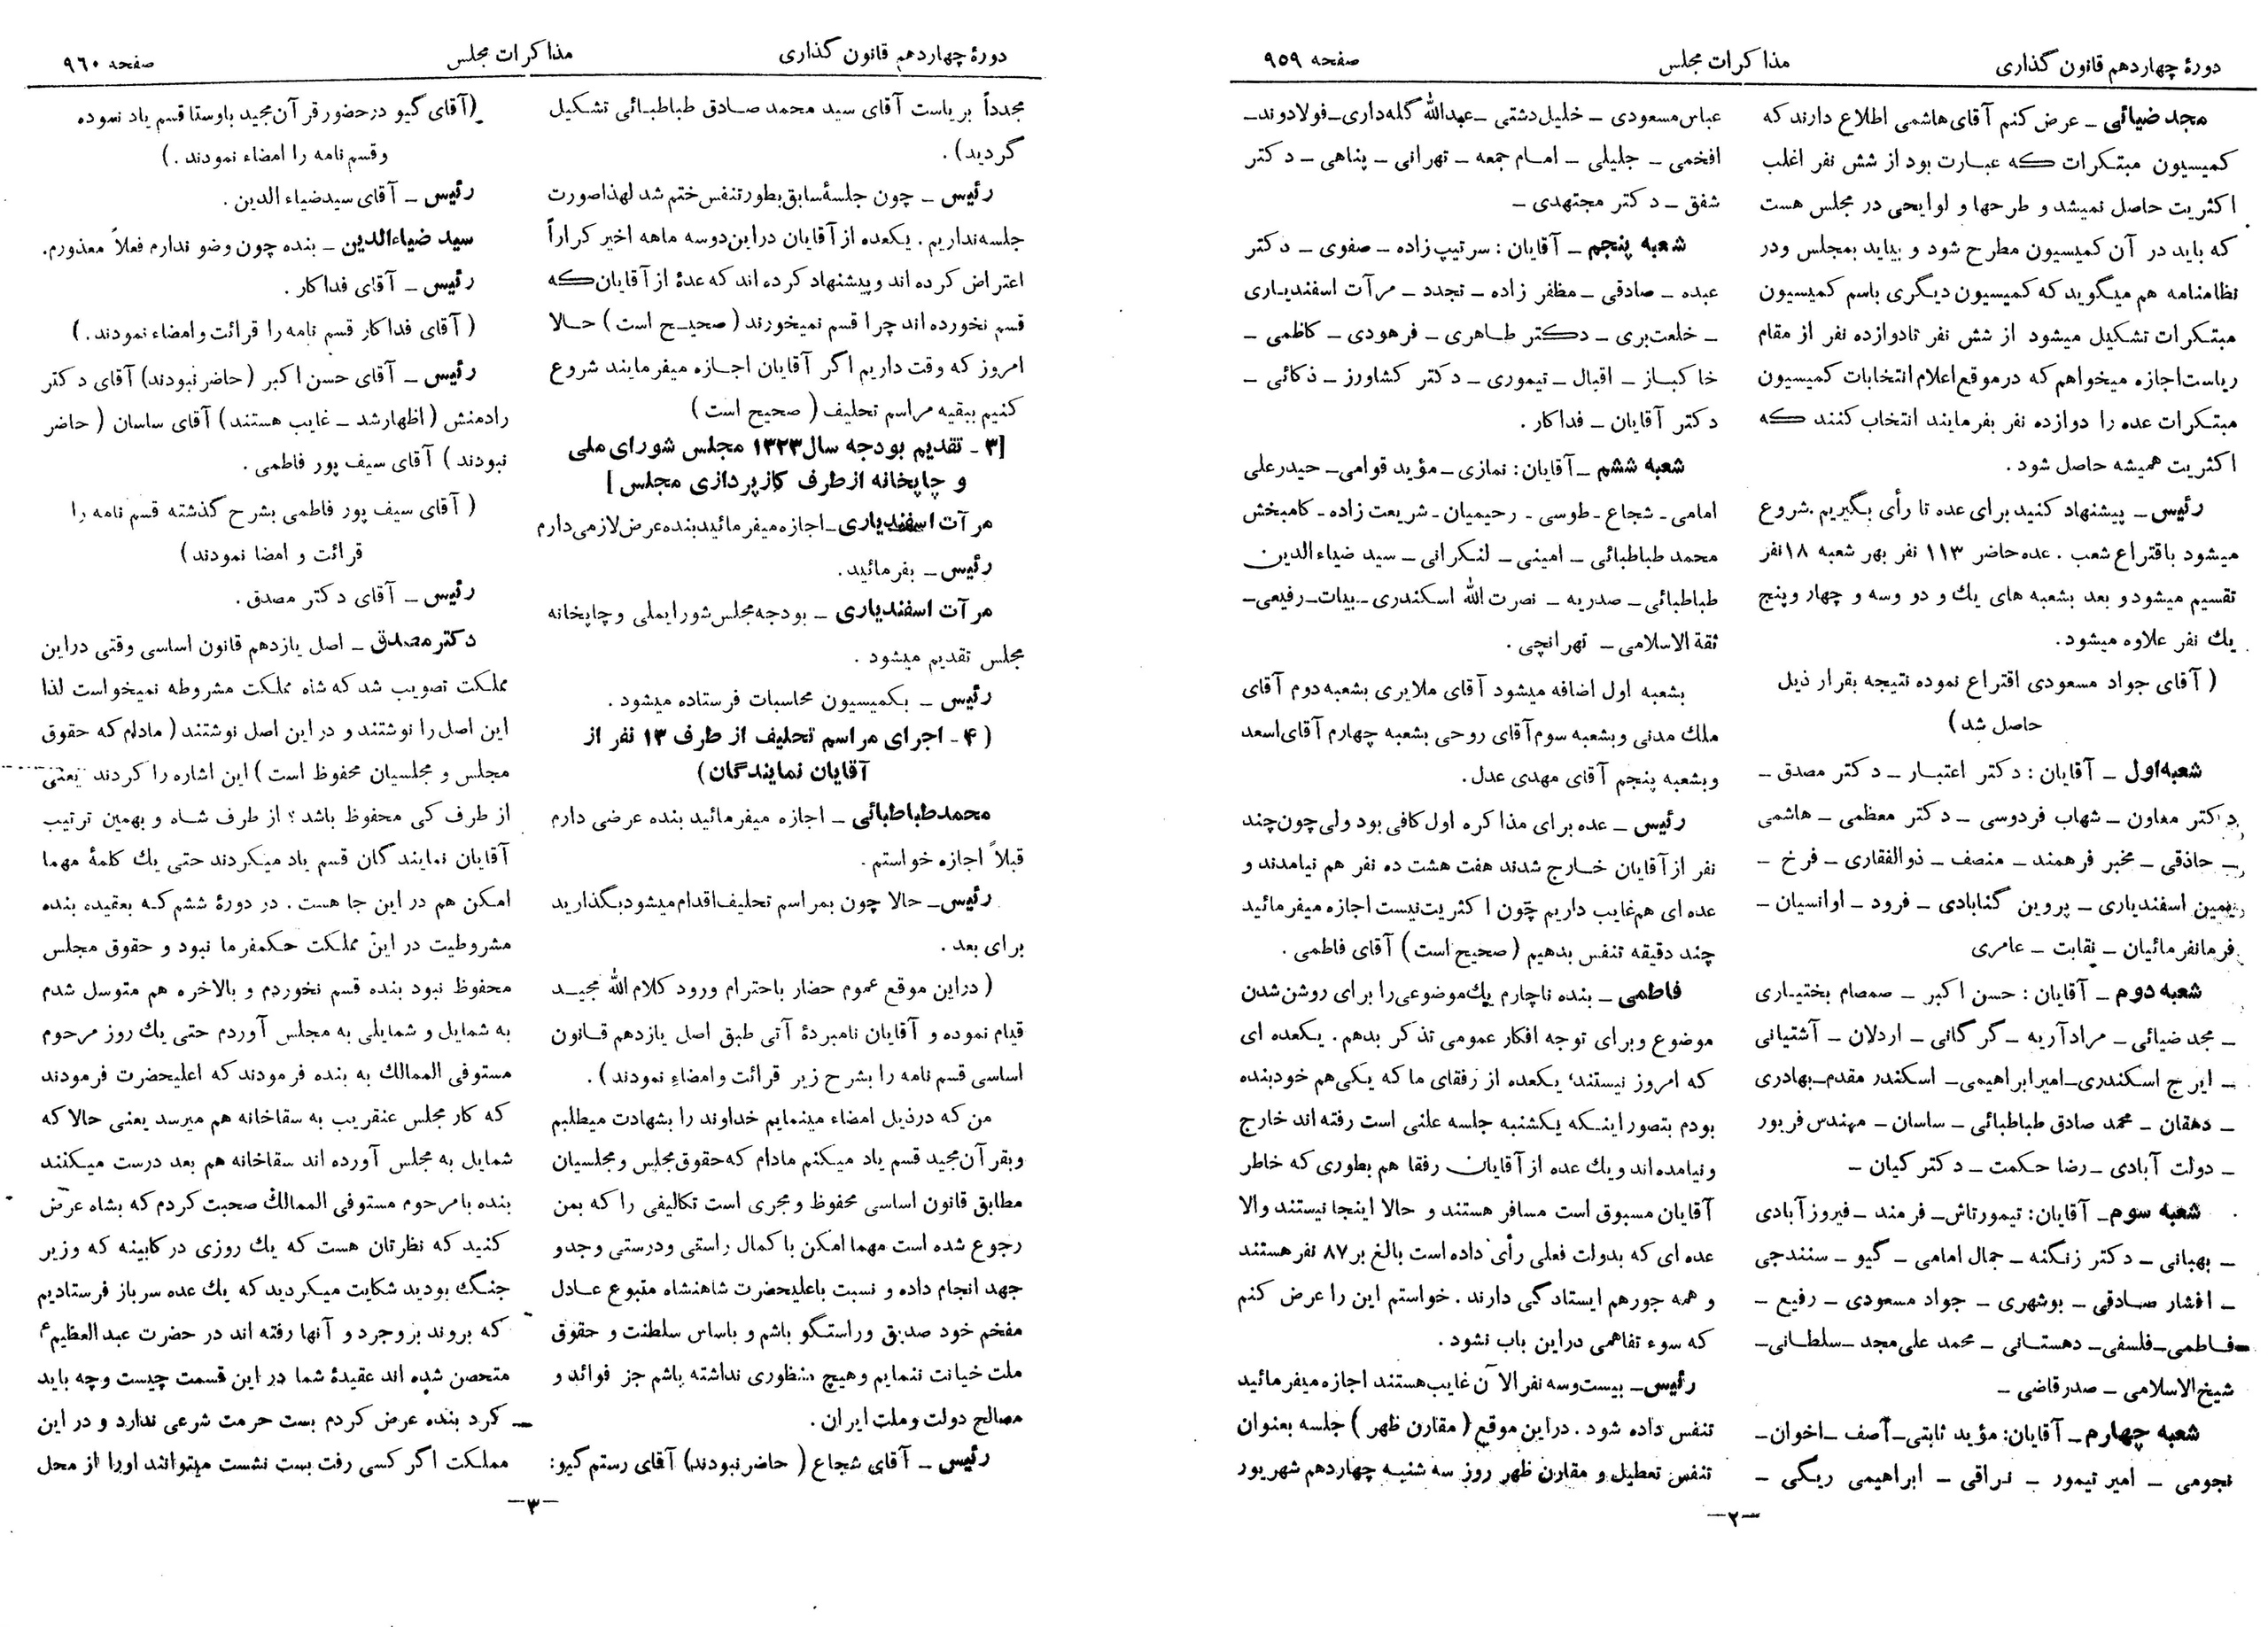 دورهٔ چهاردهم قانون گذاری
مذاکرات مجلس
صفحه ۹۵۹
مجد ضیائی ـ عرض کنم آقای هاشمی اطلاع دارند که
کمیسیون مبتکرات که عبارت بود از شش نفر اغلب
اکثریت حاصل نمیشد و طرحها و لوایحی در مجلس هست
که باید در آن کمیسیون مطرح شود و بیاید بمجلس ودر
نظامنامه هم میگوید که کمیسیون دیگری باسم کمیسیون
مبتکرات تشکیل میشود از شش نفر تادوازده نفر از مقام
ریاست اجازه میخواهم که درموقع اعلام انتخابات کمیسیون
مبتکرات عده را دوازده نفر بفرمایند انتخاب کنند که
اکثریت همیشه حاصل شود .
رئیس ـ پیشنهاد کنید برای عده تا رأی بگیریم . شروع
میشود باقتراع شعب . عده حاضر ۱۱۳ نفر بهر شعبه ۱۸ نفر
تقسیم میشود و بعد بشعبه های یك و دو وسه و چهار وپنج
یك نفر علاوه میشود.
( آقای جواد مسعودی اقتراع نموده نتیجه بقرار ذیل
حاصل شد )
شعبه اول ـ آقایان : دکتر اعتبار ـ دکتر مصدق ـ
دکتر معاون ـ شهاب فردوسی ـ دکتر معظمی ـ هاشمی
ـ حاذقی ـ مخبر فرهمند ـ منصف ـ ذوالفقاری ـ فرخ ـ
یمین اسفندیاری ـ پروین گنابادی ـ فرود ـ اوانسیان ـ
فرمانفرمائیان ـ نقابت ـ عامری
شعبه دوم ـ آقایان : حسن اکبر ـ صمصام بختیاری
ـ مجد ضیائی ـ مرادآریه ـ گرگانی ـ اردلان ـ آشتیانی
ـ ایرج اسکندری ـ امیرابراهیمی ـ اسکندر مقدم ـ بهادری
ـ دهقان ـ محمد صادق طباطبائی ـ ساسان ـ مهندس فریور
ـ دولت آبادی ـ رضا حکمت ـ دکتر کیان ـ
شعبه سوم ـ آقایان: تیمورتاش ـ فرمند ـ فیروزآبادی
ـ بهبانی ـ دکتر زنگنه ـ جمال امامی ـ گیو ـ سنندجی
ـ افشار صادقی ـ بوشهری ـ جواد مسعودی ـ رفیع ـ
ـ فاطمی ـ فلسفی ـ دهستانی ـ محمد علی مجد ـ سلطانی ـ
شیخ الاسلامی ـ صدرقاضی ـ
شعبه چهارم ـ آقایان: مؤید ثابتی ـ آصف ـ اخوان ـ
نجومی ـ امیر تیمور ـ نراقی ـ ابراهیمی ریگی ـ
عباس مسعودی ـ خلیل دشتی ـ عبدالله گله داری ـ فولادوند ـ
افخمی ـ جلیلی ـ امام جمعه ـ تهرانی ـ پناهی ـ دکتر
شفق ـ دکتر مجتهدی ـ
شعبه پنجم ـ آقایان : سرتیپ زاده ـ صفوی ـ دکتر
عبده ـ صادقی ـ مظفر زاده ـ تجدد ـ مرآت اسفندیاری
ـ خلعتبری ـ دکتر طاهری ـ فرهودی ـ کاظمی ـ
خاکباز ـ اقبال ـ تیموری ـ دکتر کشاورز ـ ذکائی ـ
دکتر آقایان ـ فداکار .
شعبه ششم ـ آقایان: نمازی ـ مؤید قوامی ـ حیدرعلی
امامی ـ شجاع ـ طوسی ـ رحیمیان ـ شریعت زاده ـ کامبخش
محمد طباطبائی ـ امینی ـ لنکرانی ـ سید ضیاءالدین
طباطبائی ـ صدریه ـ نصرت الله اسکندری ـ بیات ـ رفیعی ـ
ثقة الاسلامی ـ تهرانچی .
بشعبه اول اضافه میشود آقای ملایری بشعبه دوم آقای
ملك مدنی وبشعبه سوم آقای روحی بشعبه چهارم آقای اسعد
وبشعبه پنجم آقای مهدی عدل.
رئیس ـ عده برای مذاکره اول کافی بود ولی چون چند
نفر از آقایان خارج شدند هفت هشت ده نفر هم نیامدند و
عده ای هم غایب داریم چون اکثریت نیست اجازه میفرمائید
چند دقیقه تنفس بدهیم (صحیح است) آقای فاطمی .
فاطمی ـ بنده ناچارم یك موضوعی را برای روشن شدن
موضوع وبرای توجه افکار عمومی تذکر بدهم . یکعده ای
که امروز نیستند، یکعده از رفقای ما که یکی هم خودبنده
بودم بتصور اینکه یکشنبه جلسه علنی است رفته اند خارج
ونیامده اند ویك عده از آقایان رفقا هم بطوری که خاطر
آقایان مسبوق است مسافر هستند و حالا اینجا نیستند والا
عده ای که بدولت فعلی رأی داده است بالغ بر ۸۷ نفر هستند
و همه جورهم ایستادگی دارند . خواستم این را عرض کنم
که سوء تفاهمی دراین باب نشود .
رئیس ـ بیست وسه نفر الآن غایب هستند اجازه میفرمائید
تنفس داده شود . دراین موقع ( مقارن ظهر ) جلسه بعنوان
تنفس تعطیل و مقارن ظهر روز سه شنبه چهاردهم شهریور
ـ۲ـ
دورهٔ چهاردهم قانون گذاری
مذاکرات مجلس
صفحه ۹۶۰
مجدداً بریاست آقای سید محمد صادق طباطبائی تشکیل
گردید) .
رئیس ـ چون جلسهٔ سابق بطور تنفس ختم شد لهذا صورت
جلسه نداریم . یکعده از آقایان دراین دوسه ماهه اخیر کراراً
اعتراض کرده اند وپیشنهاد کرده اند که عدهٔ از آقایان که
قسم نخورده اند چرا قسم نمیخورند (صحیح است) حالا
امروز که وقت داریم اگر آقایان اجازه میفرمایند شروع
کنیم ببقیه مراسم تحلیف ( صحیح است )
[۳ ـ تقدیم بودجه سال ۱۳۲۳ مجلس شورای ملی
و چاپخانه از طرف کارپردازی مجلس ]
مرآت اسفندیاری ـ اجازه میفرمائید بنده عرض لازمی دارم
رئیس ـ بفرمائید.
مرآت اسفندیاری ـ بودجه مجلس شورایملی وچاپخانه
مجلس تقدیم میشود .
رئیس ـ بکمیسیون محاسبات فرستاده میشود .
( ۴ ـ اجرای مراسم تحلیف از طرف ۱۳ نفر از
آقایان نمایندگان)
محمد طباطبائی ـ اجازه میفرمائید بنده عرضی دارم
قبلاً اجازه خواستم .
رئیس ـ حالا چون بمراسم تحلیف اقدام میشود بگذارید
برای بعد .
( دراین موقع عموم حضار باحترام ورود کلام الله مجید
قیام نموده و آقایان نامبردهٔ آتی طبق اصل یازدهم قانون
اساسی قسم نامه را بشرح زیر قرائت وامضاء نمودند ) .
من که درذیل امضاء مینمایم خداوند را بشهادت میطلبم
وبقرآن مجید قسم یاد میکنم مادام که حقوق مجلس ومجلسیان
مطابق قانون اساسی محفوظ ومجری است تکالیفی را که بمن
رجوع شده است مهما امکن باکمال راستی ودرستی وجدو
جهد انجام داده و نسبت باعلیحضرت شاهنشاه متبوع عادل
مفخم خود صدیق وراستگو باشم و باساس سلطنت و حقوق
ملت خیانت ننمایم وهیچ منظوری نداشته باشم جز فوائد و
مصالح دولت وملت ایران .
رئیس ـ آقای شجاع ( حاضر نبودند) آقای رستم گیو:
(آقای گیو درحضور قرآن مجید باوستا قسم یاد نموده
وقسم نامه را امضاء نمودند .)
رئیس ـ آقای سیدضیاءالدین .
سید ضیاءالدین ـ بنده چون وضو ندارم فعلاً معذورم.
رئیس ـ آقای فداکار .
( آقای فداکار قسم نامه را قرائت وامضاء نمودند . )
رئیس ـ آقای حسن اکبر (حاضر نبودند) آقای دکتر
رادمنش ( اظهارشد ـ غایب هستند) آقای ساسان ( حاضر
نبودند ) آقای سیف پور فاطمی .
( آقای سیف پور فاطمی بشرح گذشته قسم نامه را
قرائت و امضا نمودند)
رئیس ـ آقای دکتر مصدق .
دکتر مصدق ـ اصل یازدهم قانون اساسی وقتی دراین
مملکت تصویب شد که شاه مملکت مشروطه نمیخواست لذا
این اصل را نوشتند و در این اصل نوشتند ( مادام که حقوق
مجلس و مجلسیان محفوظ است ) این اشاره را کردند یعنی
از طرف کی محفوظ باشد ؟ از طرف شاه و بهمین ترتیب
آقایان نمایندگان قسم یاد میکردند حتی یك کلمهٔ مهما
امکن هم در این جا هست . در دورهٔ ششم که بعقیده بنده
مشروطیت در این مملکت حکمفرما نبود و حقوق مجلس
محفوظ نبود بنده قسم نخوردم و بالاخره هم متوسل شدم
به شمایل و شمایلی به مجلس آوردم حتی یك روز مرحوم
مستوفی الممالك به بنده فرمودند که اعلیحضرت فرمودند
که کار مجلس عنقریب به سقاخانه هم میرسد یعنی حالا که
شمایل به مجلس آورده اند سقاخانه هم بعد درست میکنند
بنده بامرحوم مستوفی الممالك صحبت کردم که بشاه عرض
کنید که نظرتان هست که یك روزی درکابینه که وزیر
جنگ بودید شکایت میکردید که یك عده سرباز فرستادیم
که بروند بروجرد و آنها رفته اند در حضرت عبدالعظیم ع
متحصن شده اند عقیدهٔ شما در این قسمت چیست وچه باید
کرد بنده عرض کردم بست حرمت شرعی ندارد و در این
مملکت اگر کسی رفت بست نشست میتوانند اورا از محل
ـ۳ـ